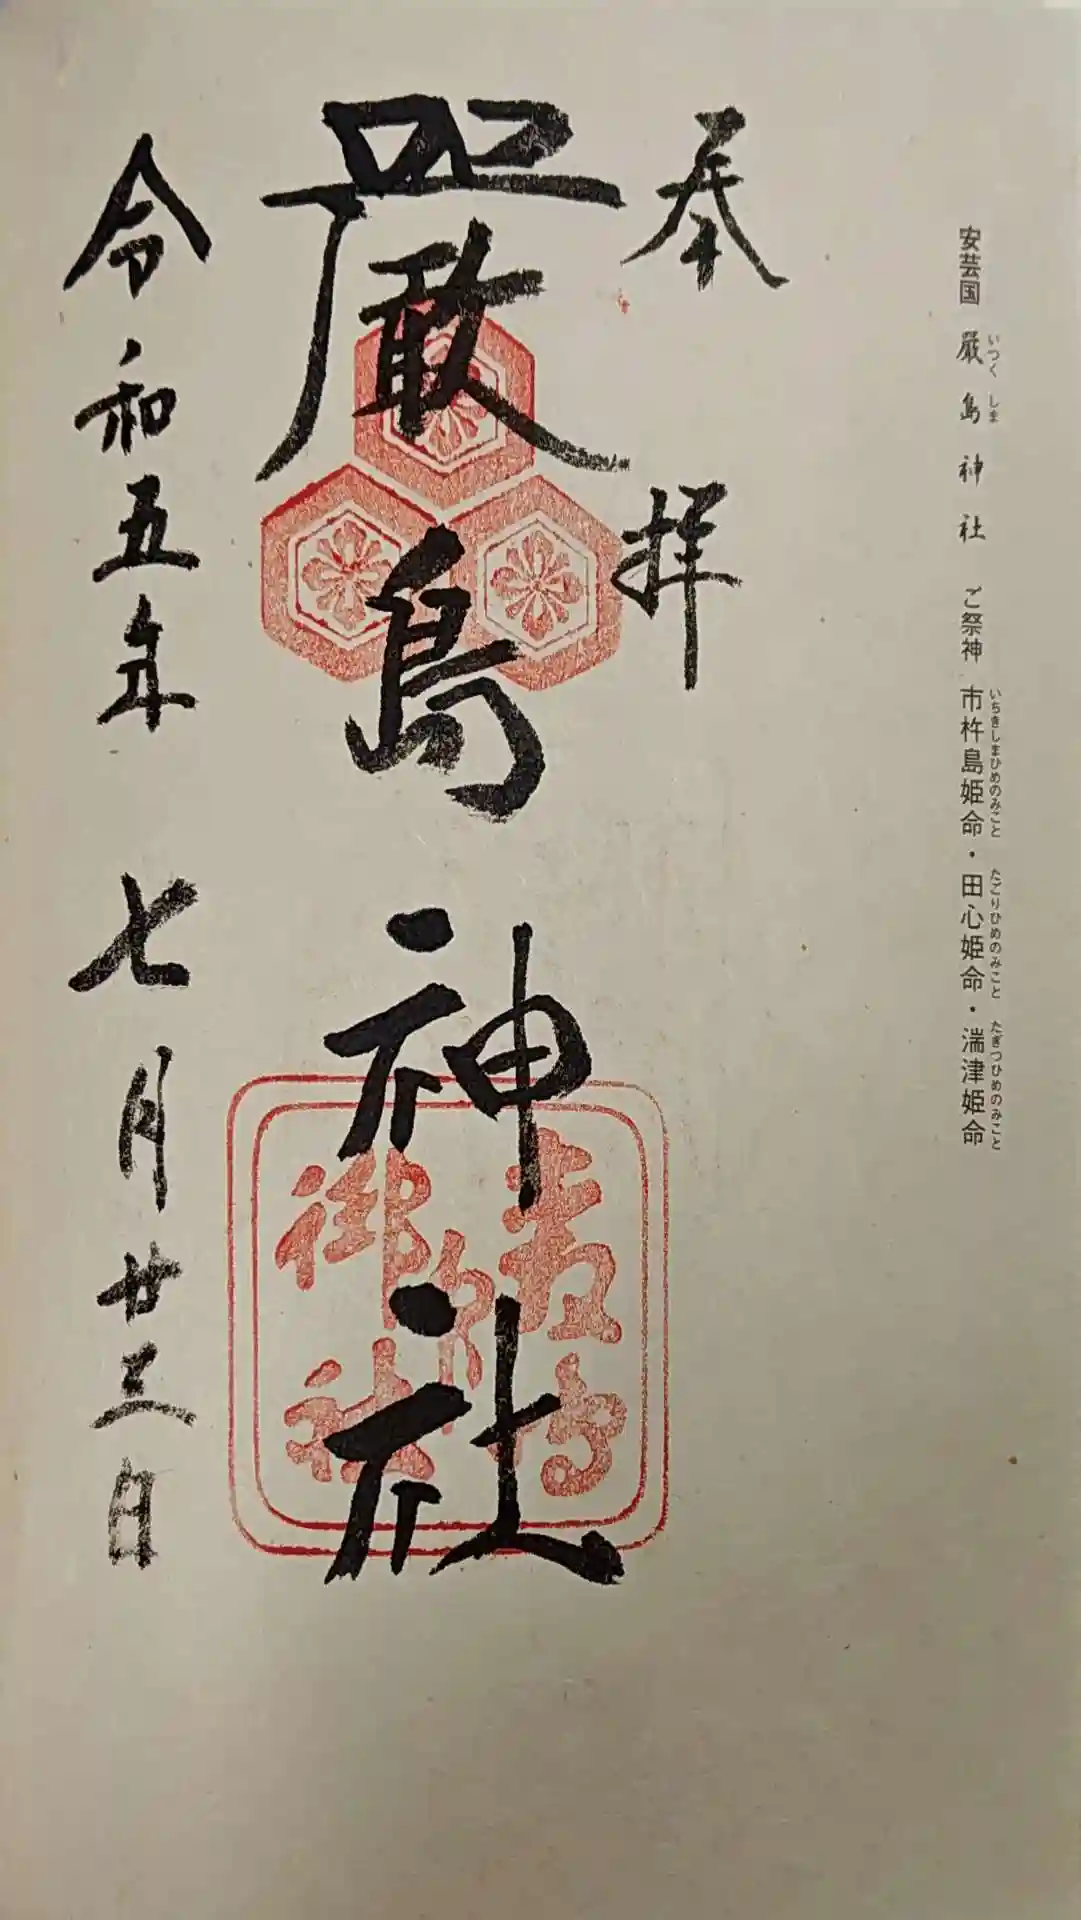 安芸国 厳島神社 ご祭神 市杵島姫命・田心姫命・湍津姫命
いつくしま いちきしまひめのみこと たごりひめのみこと たぎつひめのみこと
奉拝
厳島神社
令和五年 七月廿三日